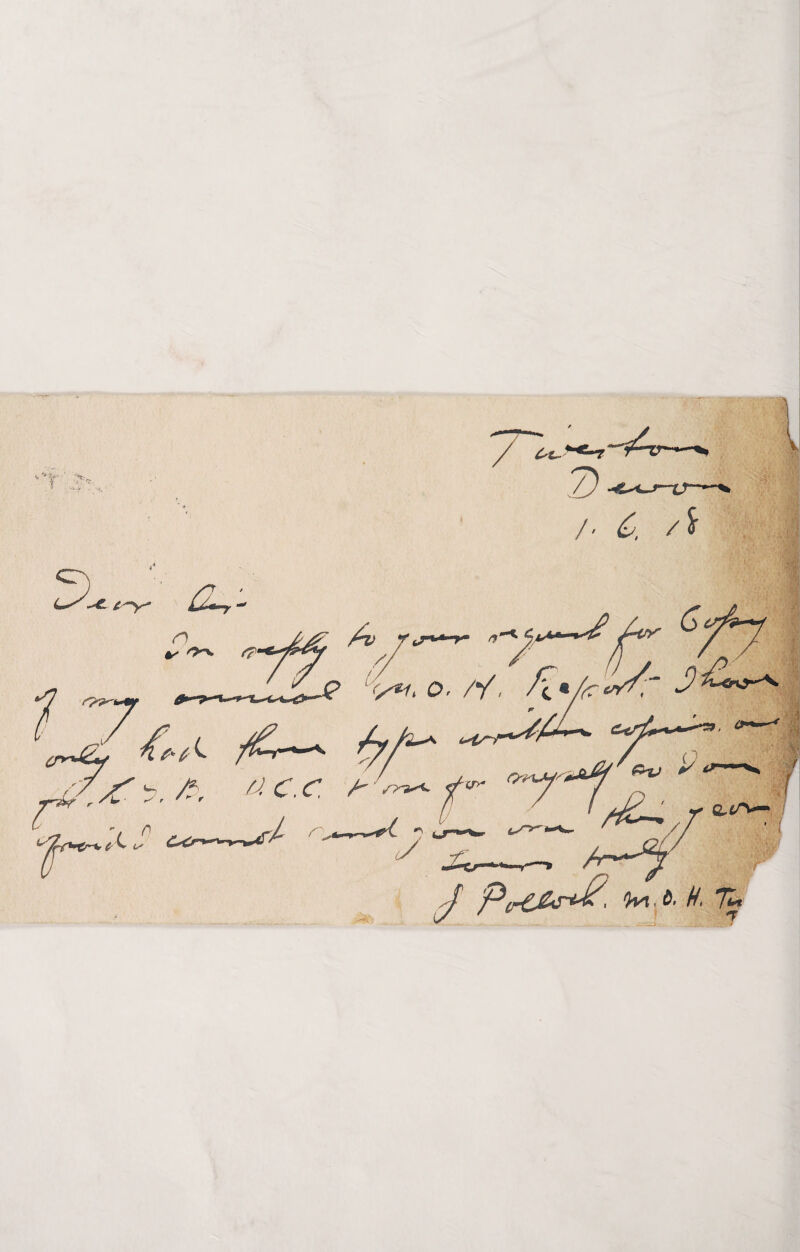 Tiverton
Devon
1. 6. 18
Dear Sir
In reply to your request for Copy
of my annual M. O. H. Report. I have
only had three type written copies. one
for L. G. B. D. C. C. & one for myself so I am
afraid I cannot send you one this year
Yours truly
J Pollock. M. O. H.